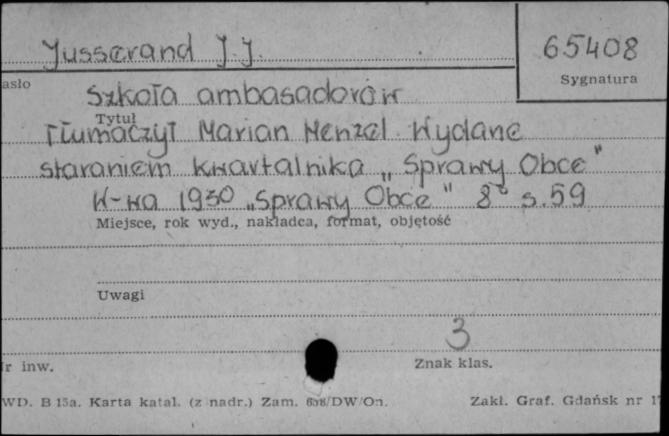 Jusserand J.J.
65408
asło
Sygnatura
Szkoła ambasadorów
Tytuł
Tłumaczył Marian Henzel. Wydane
staraniem kwartalnika „Sprawy Obce"
W-wa 1930 „Sprawy Obce" 8° s.59
Miejsce, rok wyd., nakładca, format, objętość
Uwagi
3
r inw.
Znak klas.
WD. B 15a. Karta katal. (z nadr.) Zam. /DW/On.
Zakł. Graf. Gdańsk nr 1